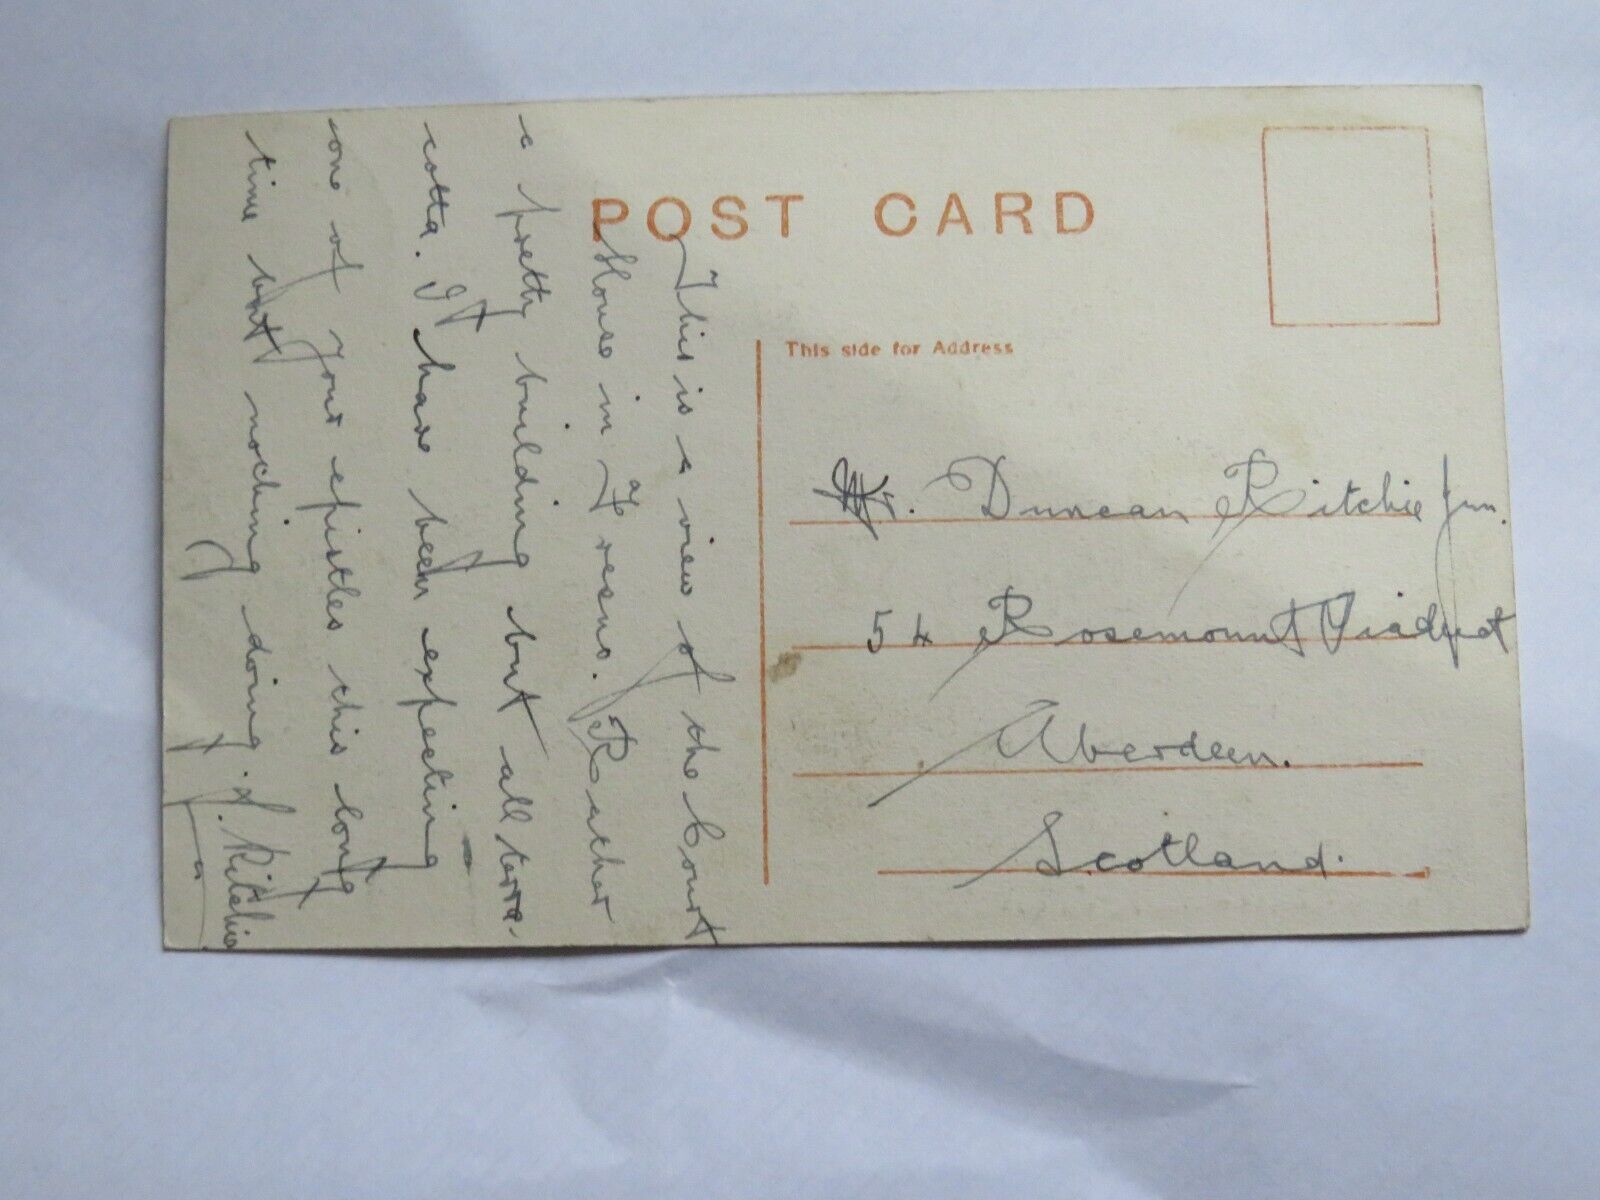 POST CARD
This side for Address
Mr. Duncan Ritchie Jun.
54 Rosemount Viaduct
Aberdeen.
Scotland.
This is a view of the Court
House in Fresno. Rather
a pretty building but all terra-
cotta. I have been expecting
one of your epistles this long
time but nothing doing. J. Ritchie